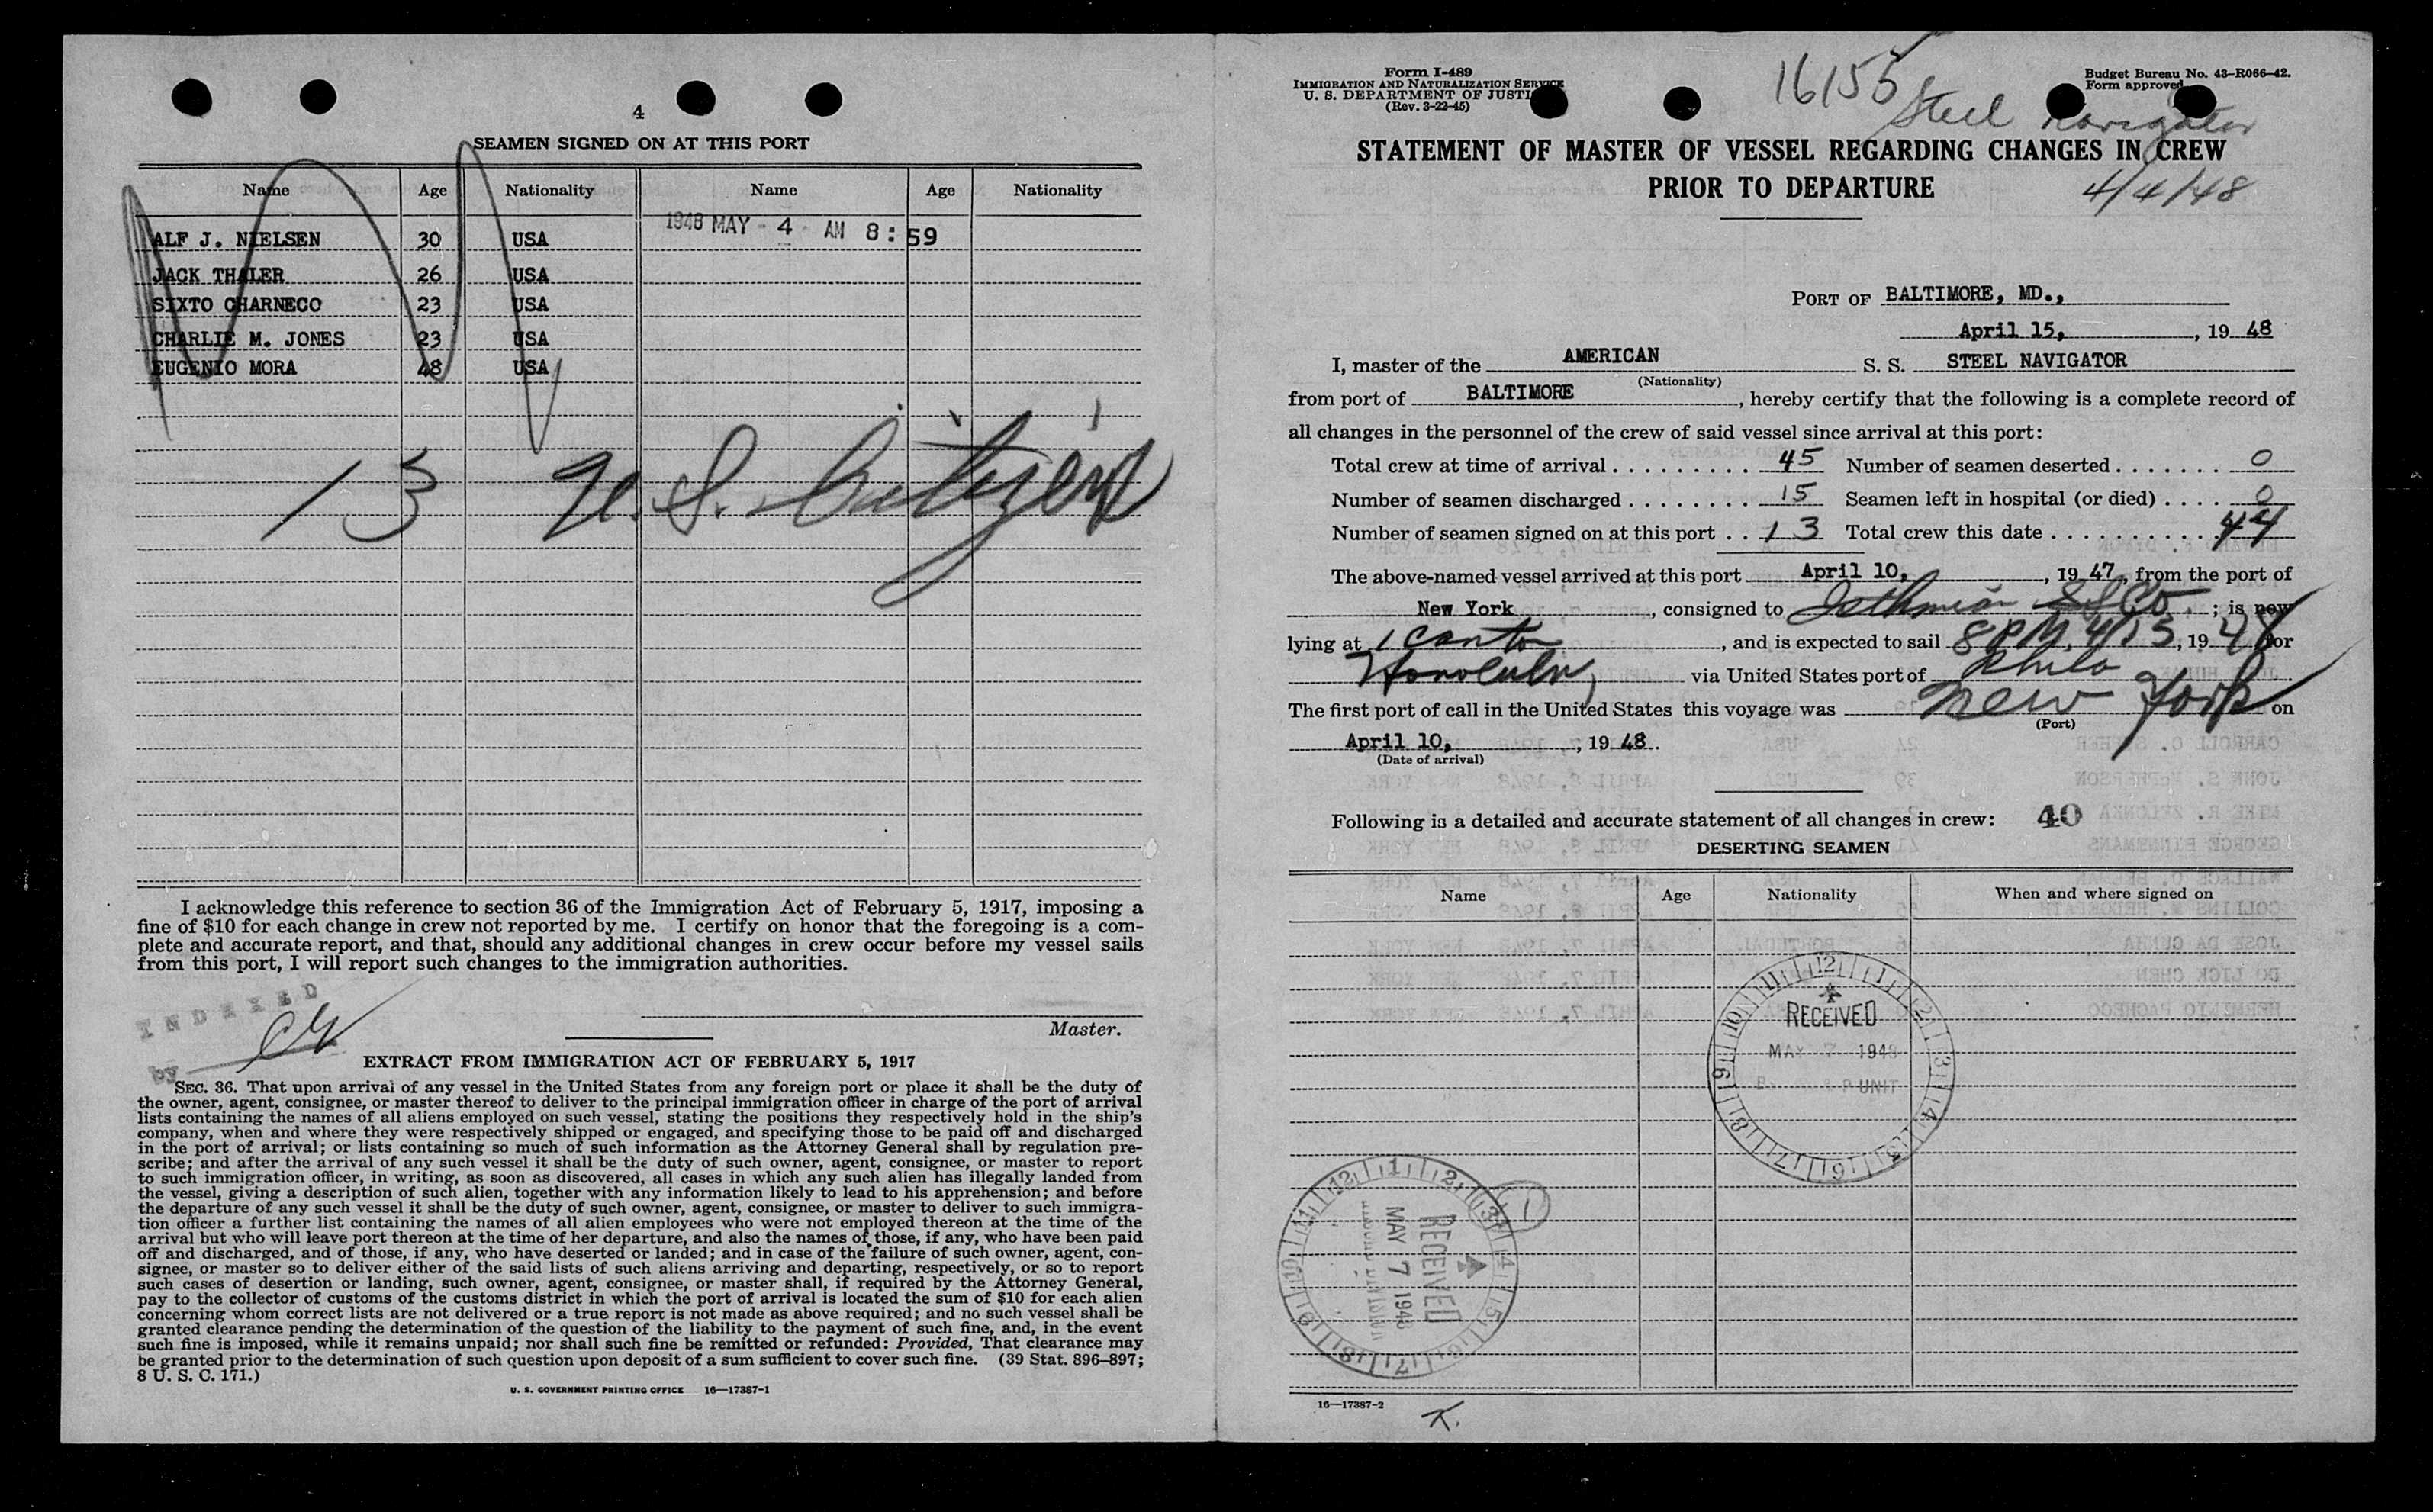 4
SEAMEN SIGNED ON AT THIS PORT
Name Age Nationality Name Age Nationality
1948 MAY - 4 AM 8:59
ALF J. NIELSEN 30 USA
JACK THALER 26 USA
SIXTO CHARNECO 23 USA
CHARLIE M. JONES 23 USA
EUGENIO MORA 48 USA
13 U.S. Citizen
I acknowledge this reference to section 36 of the Immigration Act of February 5, 1917, imposing a
fine of $10 for each change in crew not reported by me. I certify on honor that the foregoing is a com-
plete and accurate report, and that, should any additional changes in crew occur before my vessel sails
from this port, I will report such changes to the immigration authorities.
INDEXED
by
Master.
EXTRACT FROM IMMIGRATION ACT OF FEBRUARY 5, 1917
SEC. 36. That upon arrival of any vessel in the United States from any foreign port or place it shall be the duty of
the owner, agent, consignee, or master thereof to deliver to the principal immigration officer in charge of the port of arrival
lists containing the names of all aliens employed on such vessel, stating the positions they respectively hold in the ship's
company, when and where they were respectively shipped or engaged, and specifying those to be paid off and discharged
in the port of arrival; or lists containing so much of such information as the Attorney General shall by regulation pre-
scribe; and after the arrival of any such vessel it shall be the duty of such owner, agent, consignee, or master to report
to such immigration officer, in writing, as soon as discovered, all cases in which any such alien has illegally landed from
the vessel, giving a description of such alien, together with any information likely to lead to his apprehension; and before
the departure of any such vessel it shall be the duty of such owner, agent, consignee, or master to deliver to such immigra-
tion officer a further list containing the names of all alien employees who were not employed thereon at the time of the
arrival but who will leave port thereon at the time of her departure, and also the names of those, if any, who have been paid
off and discharged, and of those, if any, who have deserted or landed; and in case of the failure of such owner, agent, con-
signee, or master so to deliver either of the said lists of such aliens arriving and departing, respectively, or so to report
such cases of desertion or landing, such owner, agent, consignee, or master shall, if required by the Attorney General,
pay to the collector of customs of the customs district in which the port of arrival is located the sum of $10 for each alien
concerning whom correct lists are not delivered or a true report is not made as above required; and no such vessel shall be
granted clearance pending the determination of the question of the liability to the payment of such fine, and, in the event
such fine is imposed, while it remains unpaid; nor shall such fine be remitted or refunded: Provided, That clearance may
be granted prior to the determination of such question upon deposit of a sum sufficient to cover such fine. (39 Stat. 896–897;
8 U. S. C. 171.)
U. S. GOVERNMENT PRINTING OFFICE 16—17387-1
Form I-489
IMMIGRATION AND NATURALIZATION SERVICE
U. S. DEPARTMENT OF JUSTI
(Rev. 3-22-45)
16155
Budget Bureau No. 43-R066-42.
Form approved
Steel Navigator
STATEMENT OF MASTER OF VESSEL REGARDING CHANGES IN CREW
PRIOR TO DEPARTURE
4/4/48
PORT OF BALTIMORE, MD.,
April 15, , 19 48
I, master of the AMERICAN S. S. STEEL NAVIGATOR
(Nationality)
from port of BALTIMORE, hereby certify that the following is a complete record of
all changes in the personnel of the crew of said vessel since arrival at this port:
Total crew at time of arrival 45 Number of seamen deserted 0
Number of seamen discharged 15 Seamen left in hospital (or died) 0
Number of seamen signed on at this port 13 Total crew this date 44
The above-named vessel arrived at this port April 10, , 19 47, from the port of
New York, consigned to Isthmian SS Co. ; is now
lying at 1 Canto, and is expected to sail 8 PM 4/13, 19 48 for
Honolulu, via United States port of Phila
The first port of call in the United States this voyage was New York on
(Port)
April 10, , 19 48.
(Date of arrival)
Following is a detailed and accurate statement of all changes in crew: 40
DESERTING SEAMEN
Name Age Nationality When and where signed on
RECEIVED
MAY 7 1948
UNIT
RECEIVED
MAY 7 1948
1
16—17387-2
K.